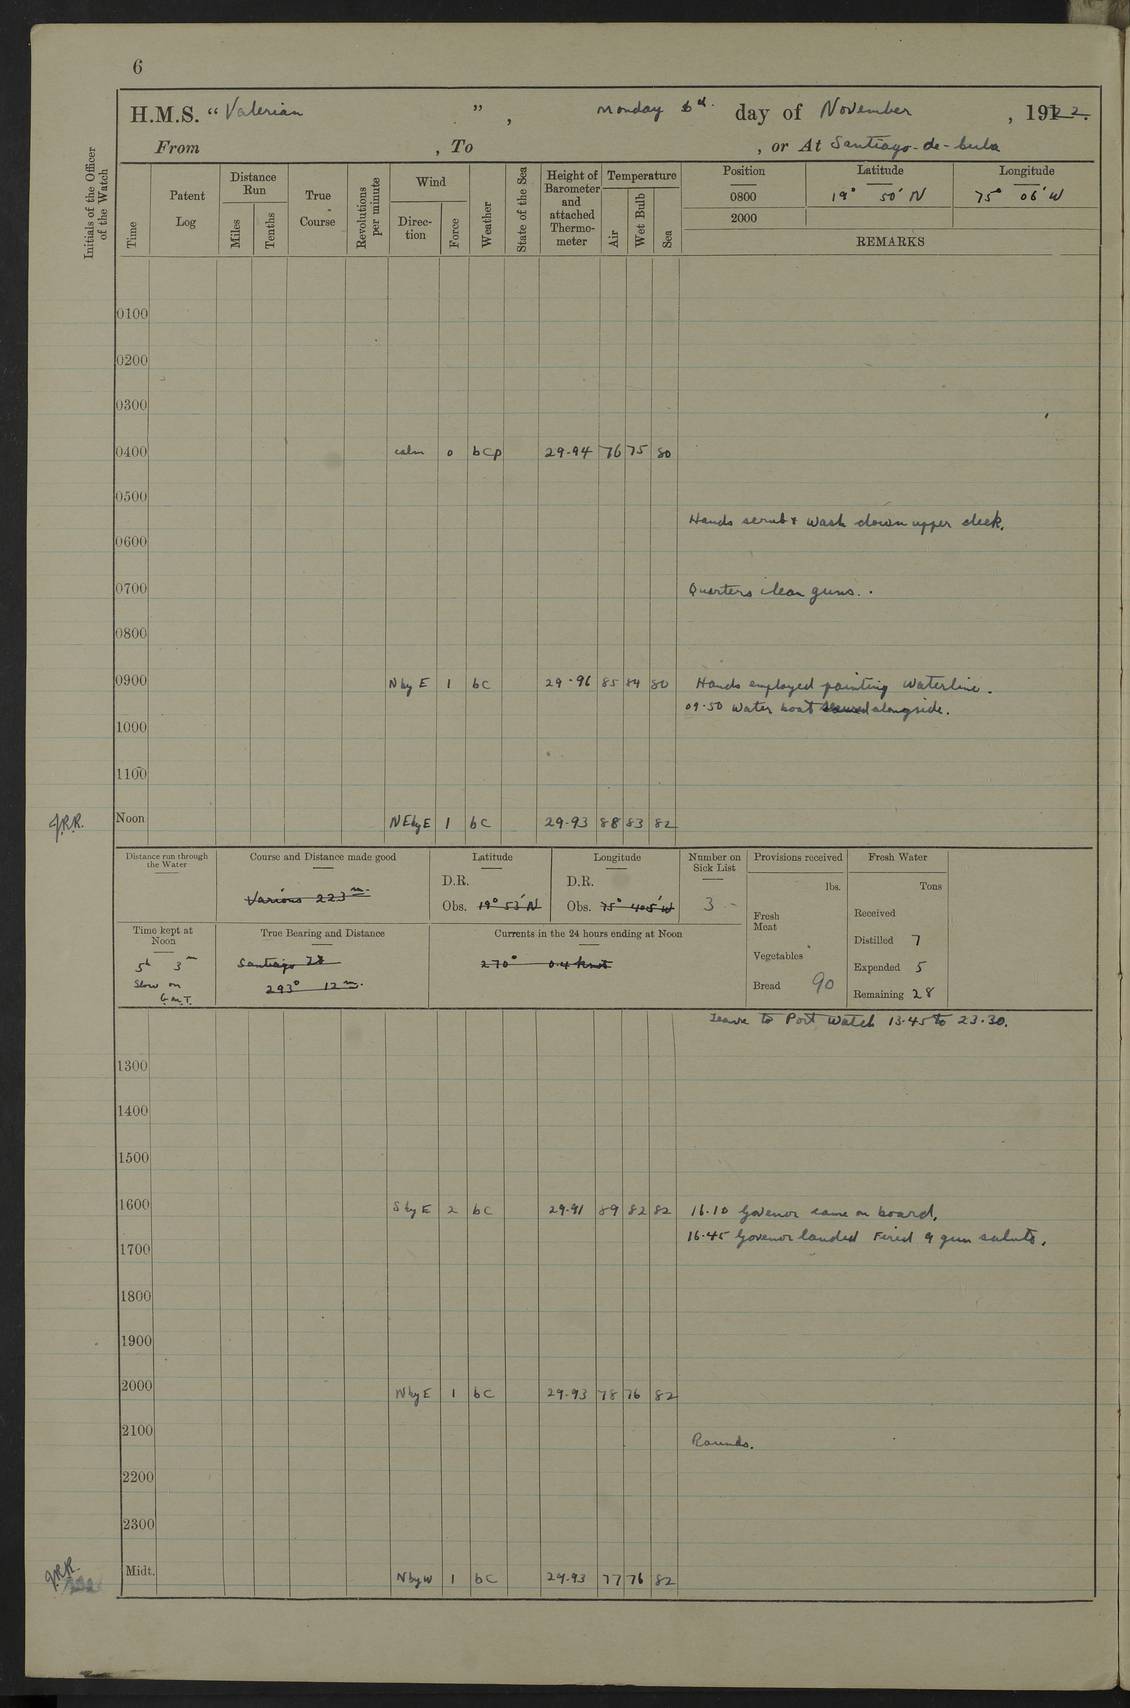 6
H.M.S. “ Valerian ”, Monday 6th day of November, 1922.
From , To , or At Santiago-de-Cuba
Initials of the Officer of the Watch
Time
Patent Log
Distance Run
Miles
Tenths
True Course
Revolutions per minute
Wind
Direction
Force
Weather
State of the Sea
Height of Barometer and attached Thermometer
Temperature
Air
Wet Bulb
Sea
Position Latitude Longitude
0800 19° 50′ N 75° 06′ W
2000
REMARKS
0100
0200
0300
0400 calm 0 bcp 29.94 76 75 80
0500
Hands scrub & wash down upper deck.
0600
0700 Quarters clean guns.
0800
0900 N by E 1 bc 29.96 85 84 80 Hands employed painting Waterline.
09.50 Water boat alongside.
1000
1100
J.R.R. Noon NE by E 1 bc 29.93 88 83 82
Distance run through the Water
Course and Distance made good
Various 223 m.
Latitude
D.R.
Obs. 19° 53′ N
Longitude
D.R.
Obs. 75° 40.5′ W
Number on Sick List
3
Provisions received
lbs.
Fresh Meat
Vegetables
Bread 90
Fresh Water
Tons
Received
Distilled 7
Expended 5
Remaining 28
Time kept at Noon
5h 3m
Slow on
G.M.T.
True Bearing and Distance
Santiago
293° 12 m.
Currents in the 24 hours ending at Noon
270° 0.4 knot
Leave to Port Watch 13.45 to 23.30.
1300
1400
1500
1600 S by E 2 bc 29.91 89 82 82 16.10 Govenor came on board.
16.45 Govenor landed Fired 9 gun salute.
1700
1800
1900
2000 N by E 1 bc 29.93 78 76 82
2100 Rounds.
2200
2300
J.R.R. Midt. N by W 1 bc 29.93 77 76 82